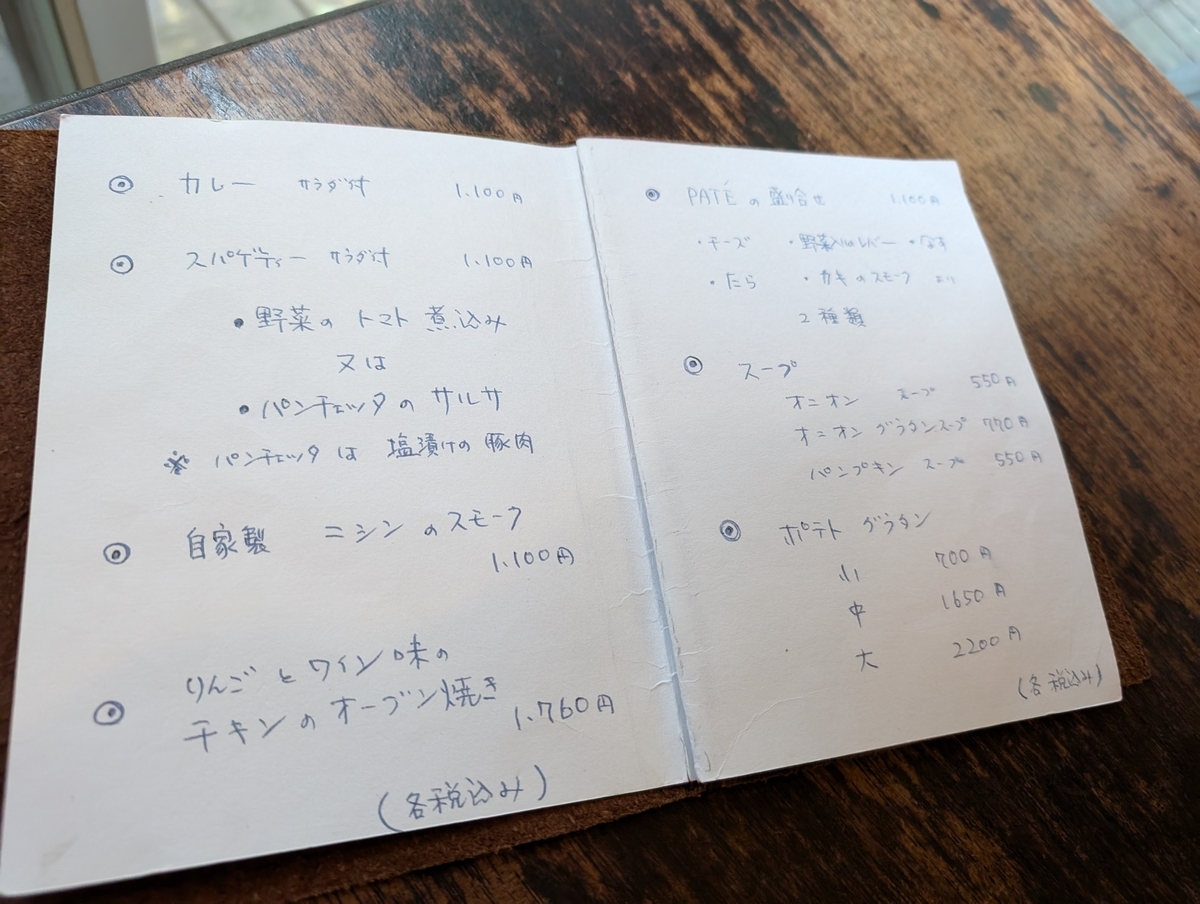 ◉ カレー サラダ付 1.100円
◉ スパゲティー サラダ付 1.100円
• 野菜の トマト 煮込み
又は
• パンチェッタ の サルサ
※ パンチェッタ は 塩漬けの 豚肉
◉ 自家製 ニシン の スモーク
1.100円
◉ りんご と ワイン 味の
チキン の オーブン焼き 1.760円
(各税込み)
◉ PATÉ の 盛り合せ 1.100円
・チーズ ・野菜入りレバー ・なす
・たら ・カキ の スモーク より
2種類
◉ スープ
オニオン スープ 550円
オニオン グラタンスープ 770円
パンプキン スープ 550円
◉ ポテト グラタン
小 700円
中 1650円
大 2200円
(各税込み)